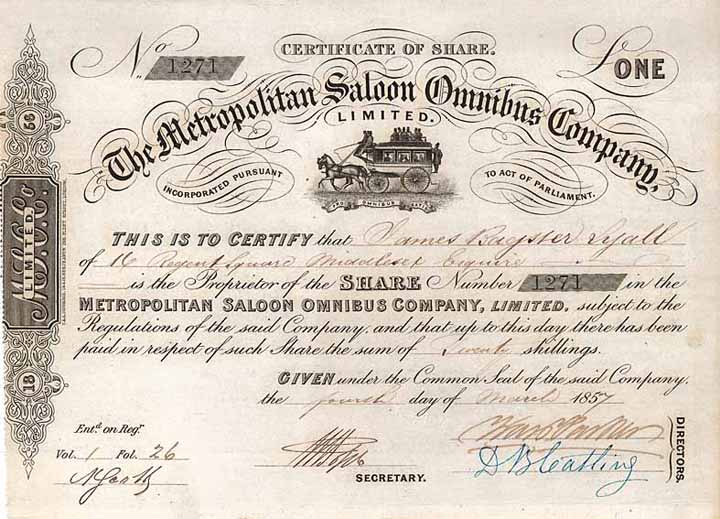 No 1271
CERTIFICATE OF SHARE.
£ONE
The Metropolitan Saloon Omnibus Company,
LIMITED.
INCORPORATED PURSUANT TO ACT OF PARLIAMENT.
PRO OMNIBUS
18 56
M.S.O.Co
LIMITED.
THIS IS TO CERTIFY that James Bagster Lyall
of 16 Regent Square Middlesex Esquire
is the Proprietor of the SHARE Number 1271 in the
METROPOLITAN SALOON OMNIBUS COMPANY, LIMITED. subject to the
Regulations of the said Company, and that up to this day there has been
paid in respect of such Share the sum of Twenty shillings.
GIVEN under the Common Seal of the said Company,
the fourth day of March 1857
Entd. on Regr.
Vol. 1 Fol. 26
SECRETARY.
DIRECTORS.